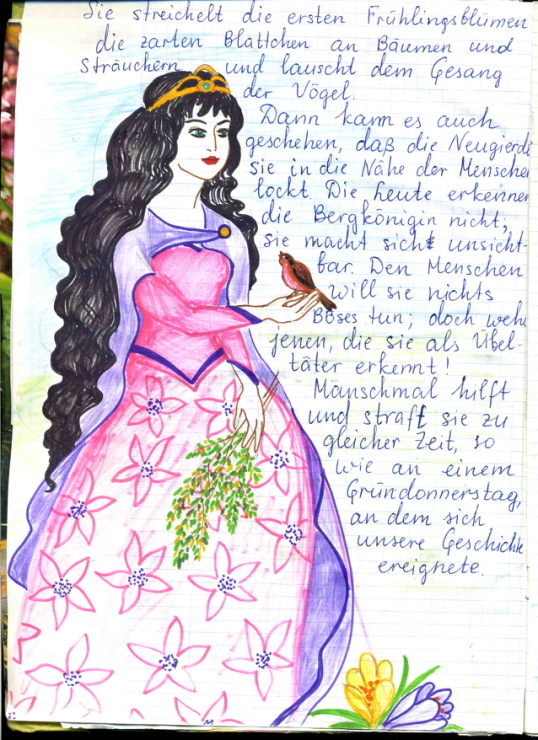 Sie streichelt die ersten Frühlingsblümen
die zarten Blättchen an Bäumen und
Sträuchern und lauscht dem Gesang
der Vögel.
Dann kann es auch
geschehen, daß die Neugierde
sie in die Nähe der Menschen
lockt. Die Leute erkennen
die Bergkönigin nicht;
sie macht sich unsicht-
bar. Den Menschen
will sie nichts
Böses tun; doch wehe
jenen, die sie als Übel-
täter erkennt!
Manschmal hilft
und straft sie zu
gleicher Zeit, so
wie an einem
Gründonnerstag,
an dem sich
unsere Geschichte
ereignete.